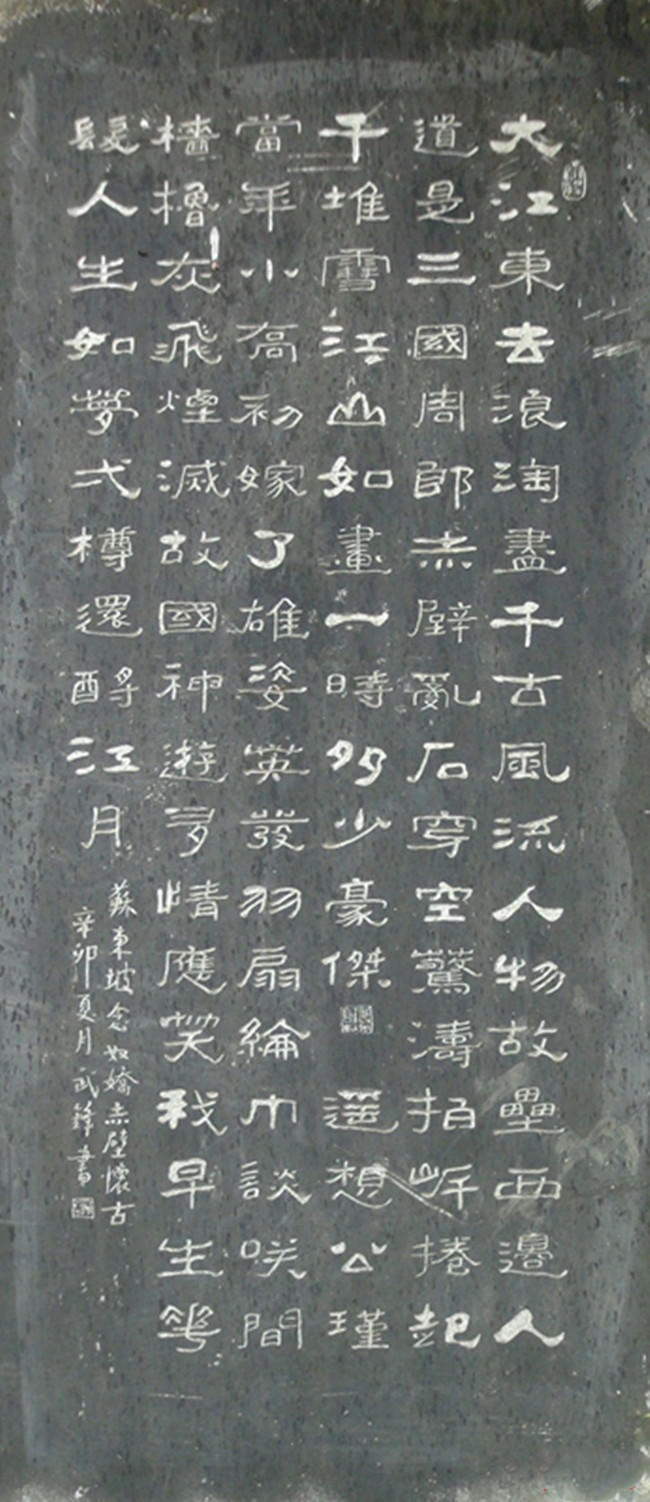 大江東去浪淘盡千古風流人物故壘西邊人
道是三國周郎赤壁亂石穿空驚濤拍岸捲起
千堆雪江山如畫一時多少豪傑遥想公瑾
當年小喬初嫁了雄姿英發羽扇綸巾談咲間
檣櫓灰飛煙滅故國神遊多情應笑我早生華
髮人生如夢弌樽還酹江月
蘇東坡念奴嬌赤壁懷古
辛卯夏月武鋒書